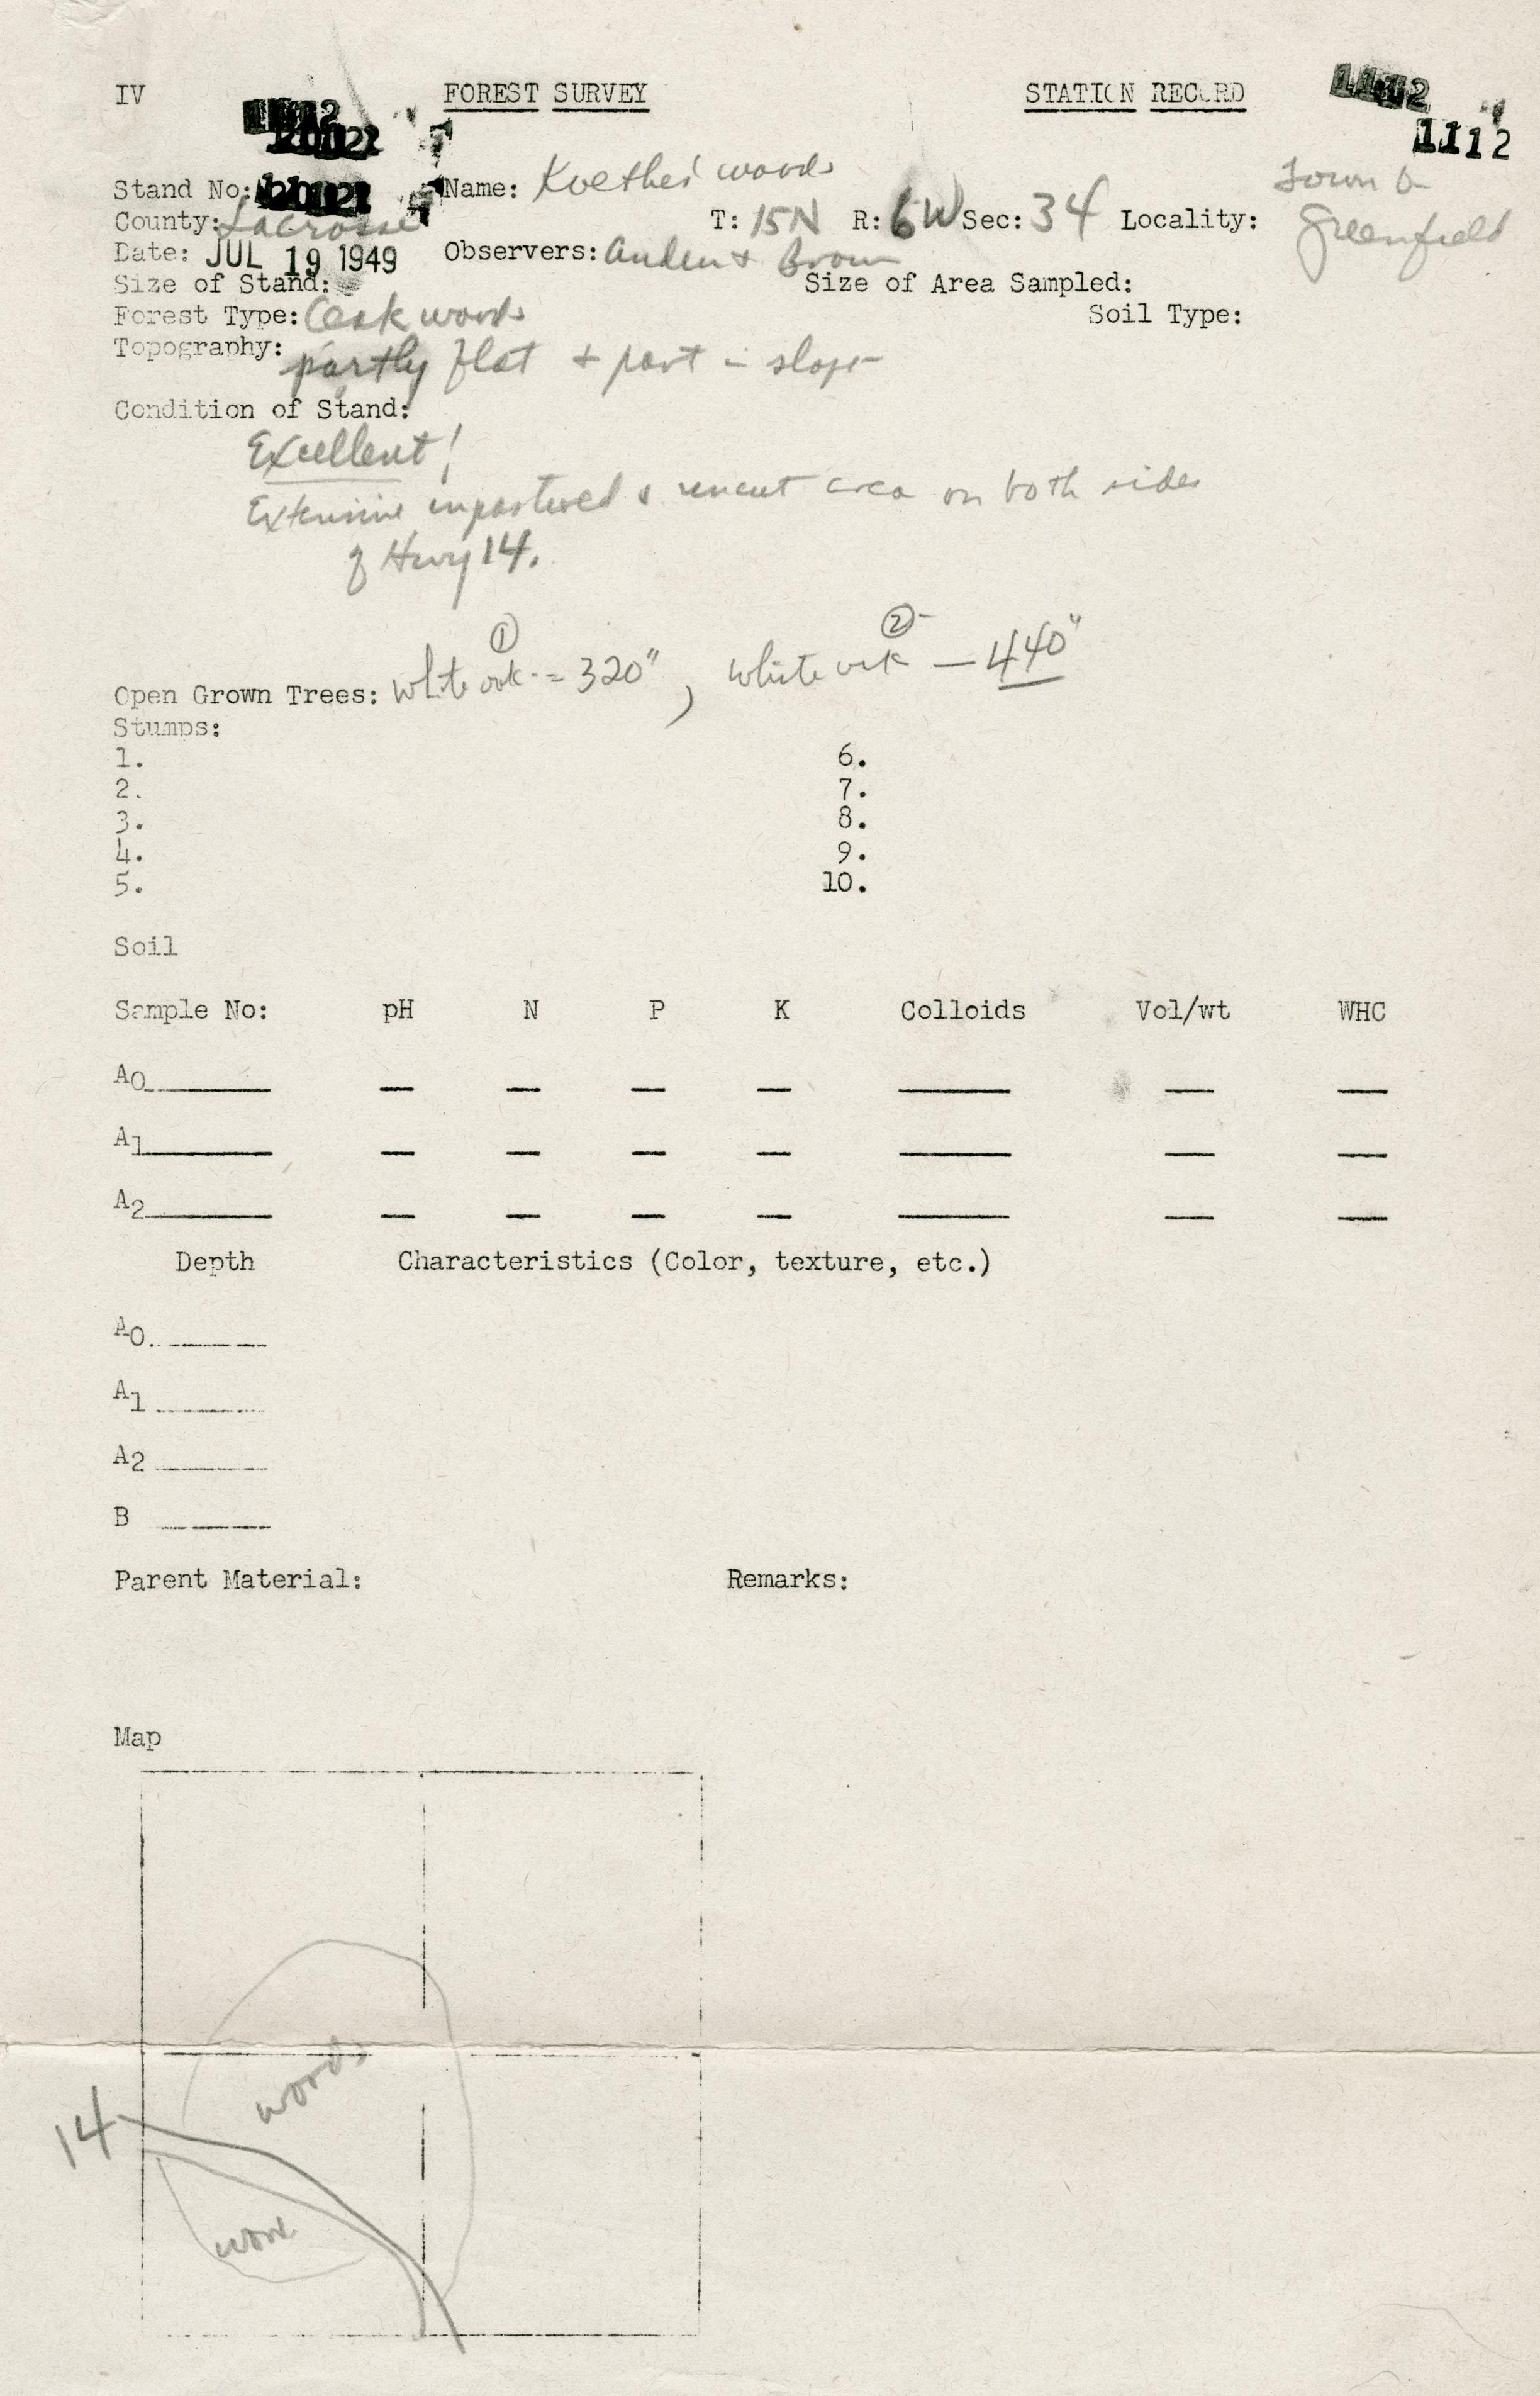 IV FOREST SURVEY STATION RECORD
1112
Stand No: Name: Koethe's woods
County: LaCrosse T: 15N R: 6W Sec: 34 Locality: Town of Greenfield
Date: JUL 19 1949 Observers: & Brown
Size of Stand: Size of Area Sampled:
Forest Type: Oak woods Soil Type:
Topography: partly flat + part in slope
Condition of Stand:
Excellent!
Extensive unpastured & uncut area on both sides
of Hwy 14.
① ②
Open Grown Trees: White oak = 320", White oak — 440"
Stumps:
1. 6.
2. 7.
3. 8.
4. 9.
5. 10.
Soil
Sample No: pH N P K Colloids Vol/wt WHC
A0
A1
A2
Depth Characteristics (Color, texture, etc.)
A0
A1
A2
B
Parent Material: Remarks:
Map
woods
14